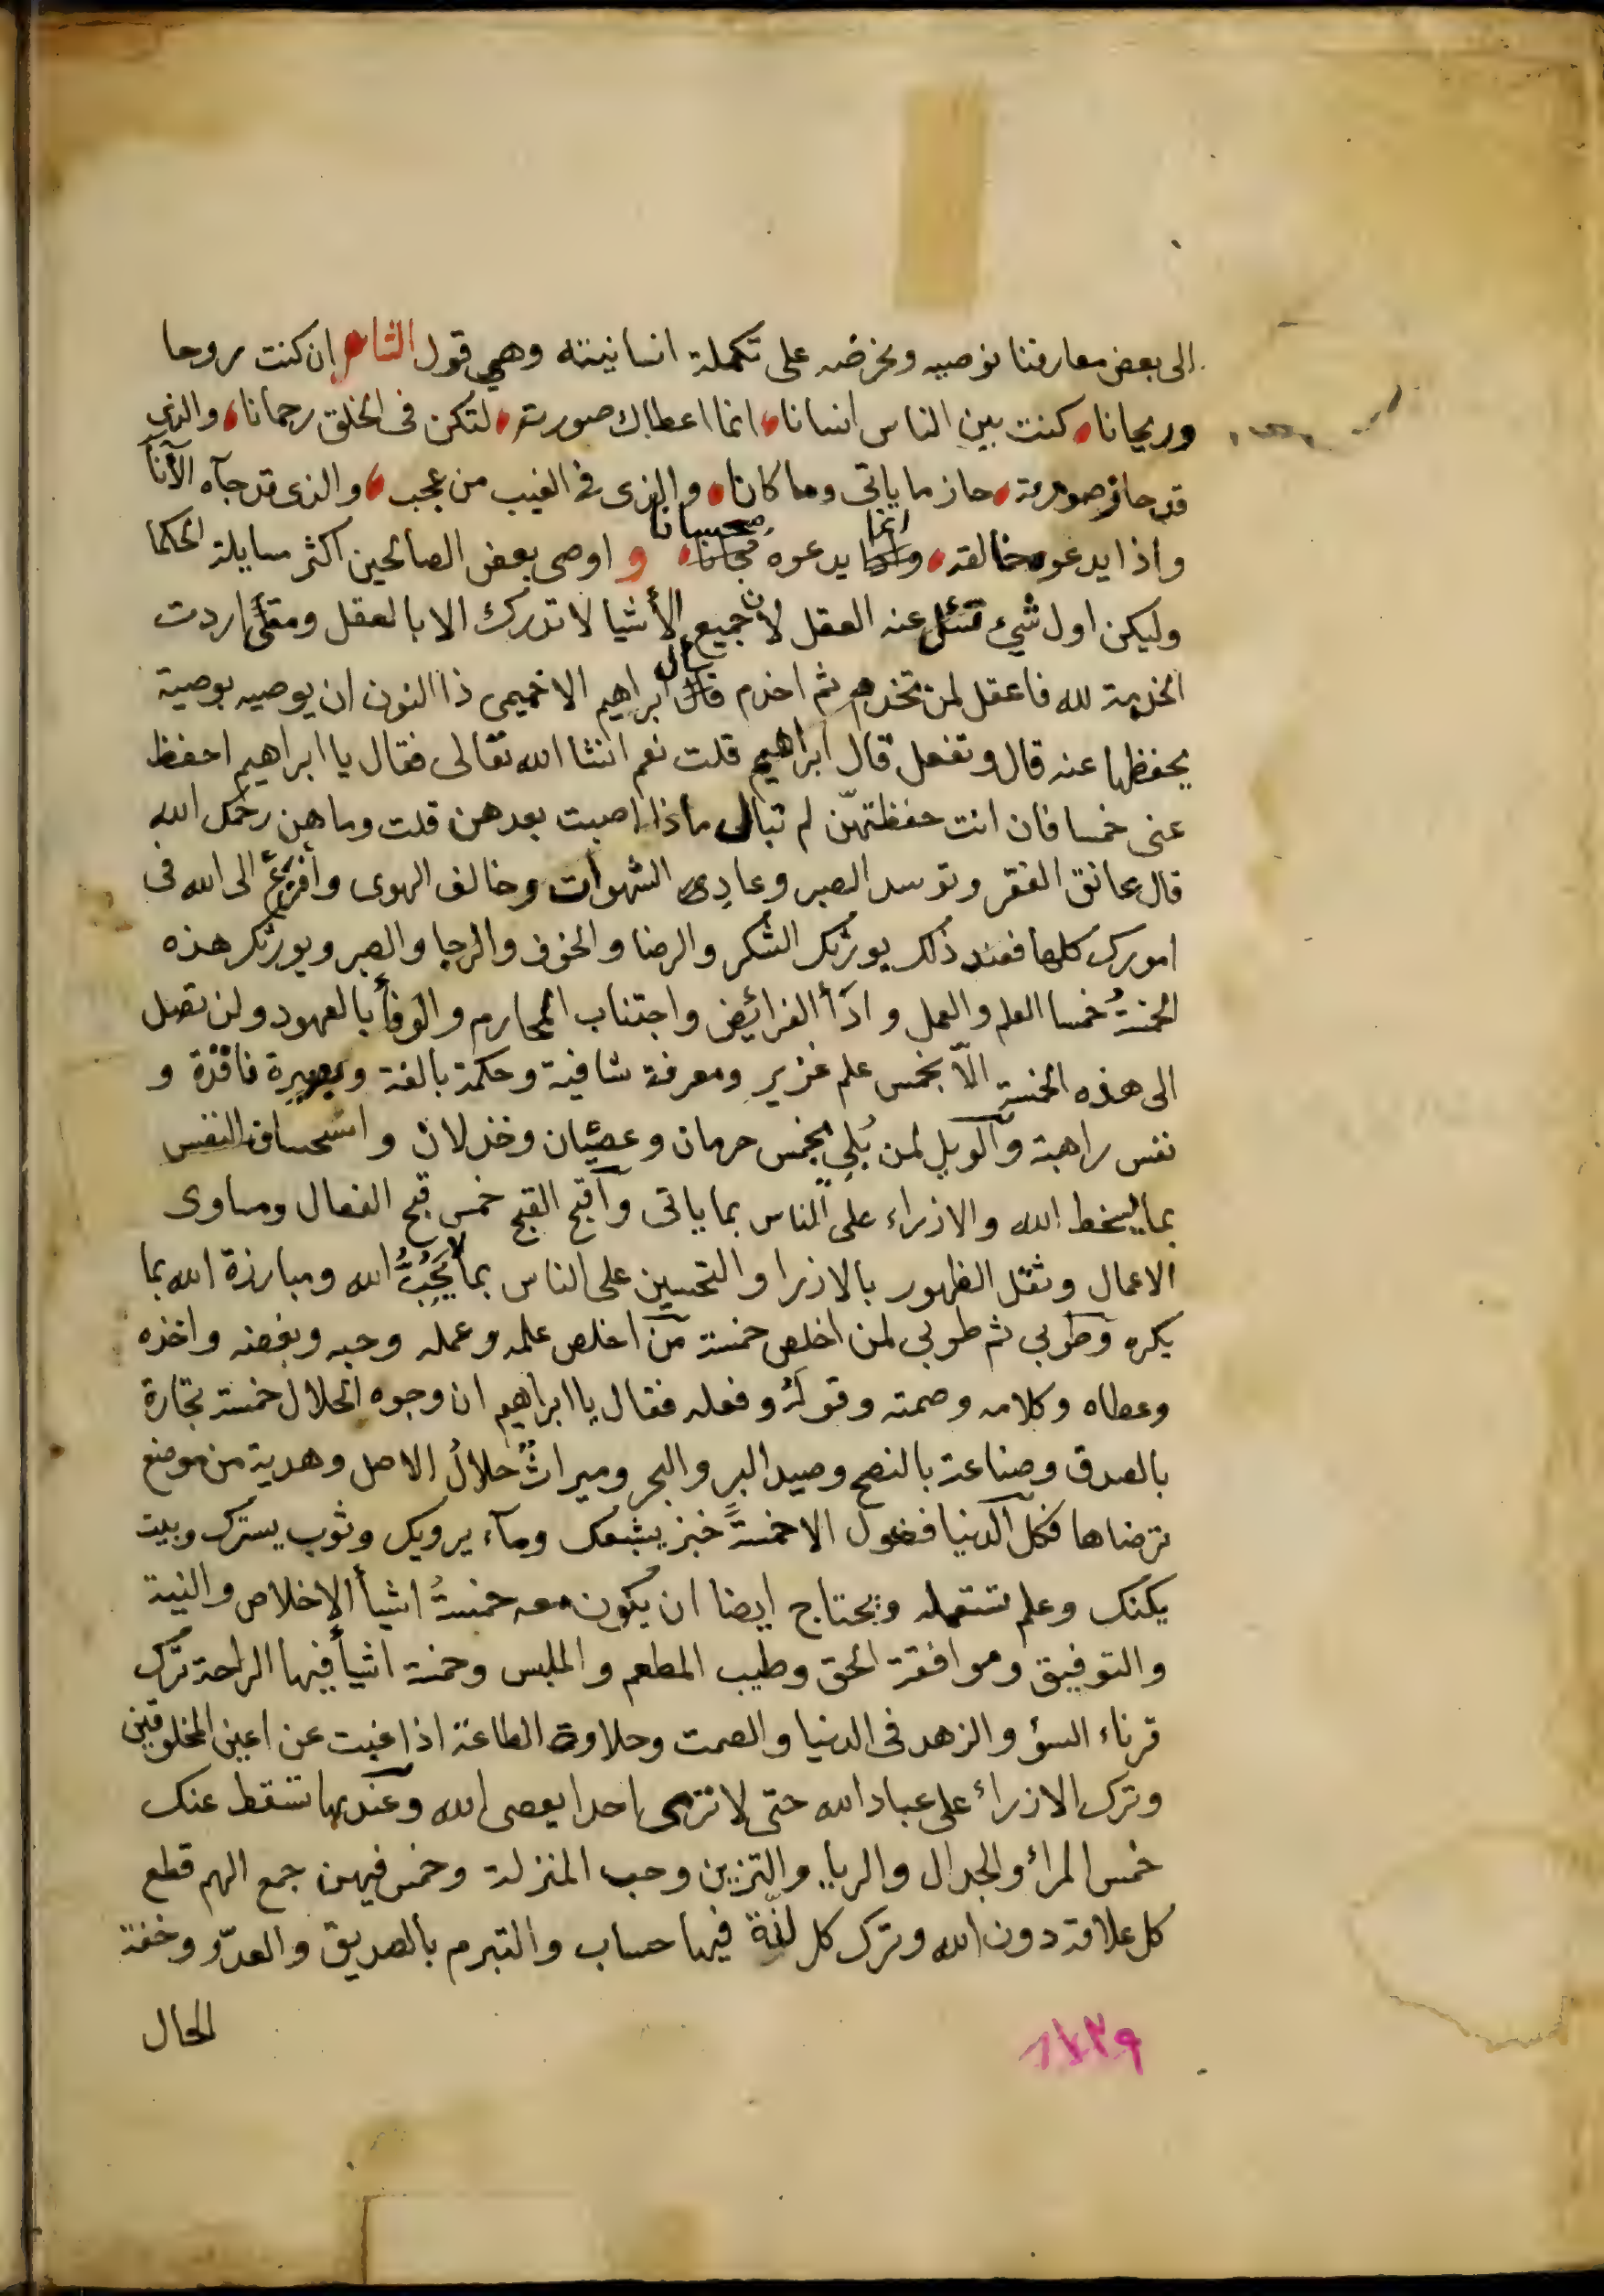 الى بعض معارفنا نوصيه ونحرضه على تكملة انسانيته وهي قول الشاعر ان كنت روحا
وريحانا كنت بين الناس انسانا انما اعطاك صورته لتكن فى الخلق رحمانا والذى
قد حاز صورته حاز ما ياتى وما كانا والذى فى الغيب من عجب والذى قد جآه الآنآ
واذا يدعوه خالقه وانما يدعوه محسانا و اوصى بعض الصالحين اكثر مسايلة الحكما
وليكن اول شيء تسئل عنه العقل لان جميع الأشيا لا تدرك الا بالعقل ومتى اردت
الخدمة لله فاعقل لمن تخدم ثم اخدم سأل ابراهيم الاخميمى ذا النون ان يوصيه بوصية
يحفظها عنه قال وتفعل قال ابراهيم قلت نعم انشا الله تعالى فقال يا ابراهيم احفظ
عنى خمسا فان انت حفظتهنّ لم تبال ماذا اصبت بعدهن قلت وما هن رحمك الله
قال عانق الفقر وتوسد الصبر وعادى الشهوات وخالف الهوى وأفزع الى الله فى
امورك كلها فعند ذلك يورثك الشكر والرضا والخوف والرجا والصبر ويورثك هذه
الخمسةُ خمسا العلم والعمل و ادَأ الفرائض واجتناب المحارم والوفأ بالعهود ولن تصل
الى هذه الخمسة الّا بخمس علم غزير ومعرفة شافية وحكمة بالغة وبصيرة نافذة و
نفس راهبة وآلويل لمن بُلى بخمس حرمان وعصيان وخذلان و استحسان النفس
بما يسخط الله والازراء على الناس بما ياتى وآقبح القبح خمس قبح الفعال ومساوى
الاعمال وثقل الظهور بالازرا والتحسين على الناس بما لا يُحِبُّ الله ومبارزة الله بما
يكره وطوبى ثم طوبى لمن اخلص خمسة من اخلص علمه وعمله وحبه وبغضه واخذه
وعطاه وكلامه وصمته وقولَهُ وفعله فقال يا ابراهيم ان وجوه الحلال خمسة تجارة
بالصدق وصناعة بالنصح وصيد البر والبحر وميراثٌ حلالُ الاصل وهدية من موضع
ترضاها فكل آلدنيا فضول الا خمسةً خبز يشبعك ومآء يرويك وثوب يسترك وبيت
يكنك وعلم تستعمله ويحتاج ايضا ان يكون معه خمسةُ اشيأ الاخلاص والنية
والتوفيق وموافقة الحق وطيب المطعم والملبس وخمسة اشيأ فيها الراحة ترك
قرناء السؤ والزهد فى الدنيا والصمت وحلاوة الطاعة اذا غبت عن اعين المخلوقين
وترك الازراء على عباد الله حتى لا تزرى احدا يعصى الله وعندها تسقط عنك
خمس المراء والجدال والريا والتزين وحب المنزلة وخمس فيهن جمع الهم قطع
كل علاقة دون الله وترك كل لذّة فيها حساب والتبرم بالصديق والعدوّ وخفة
الحال